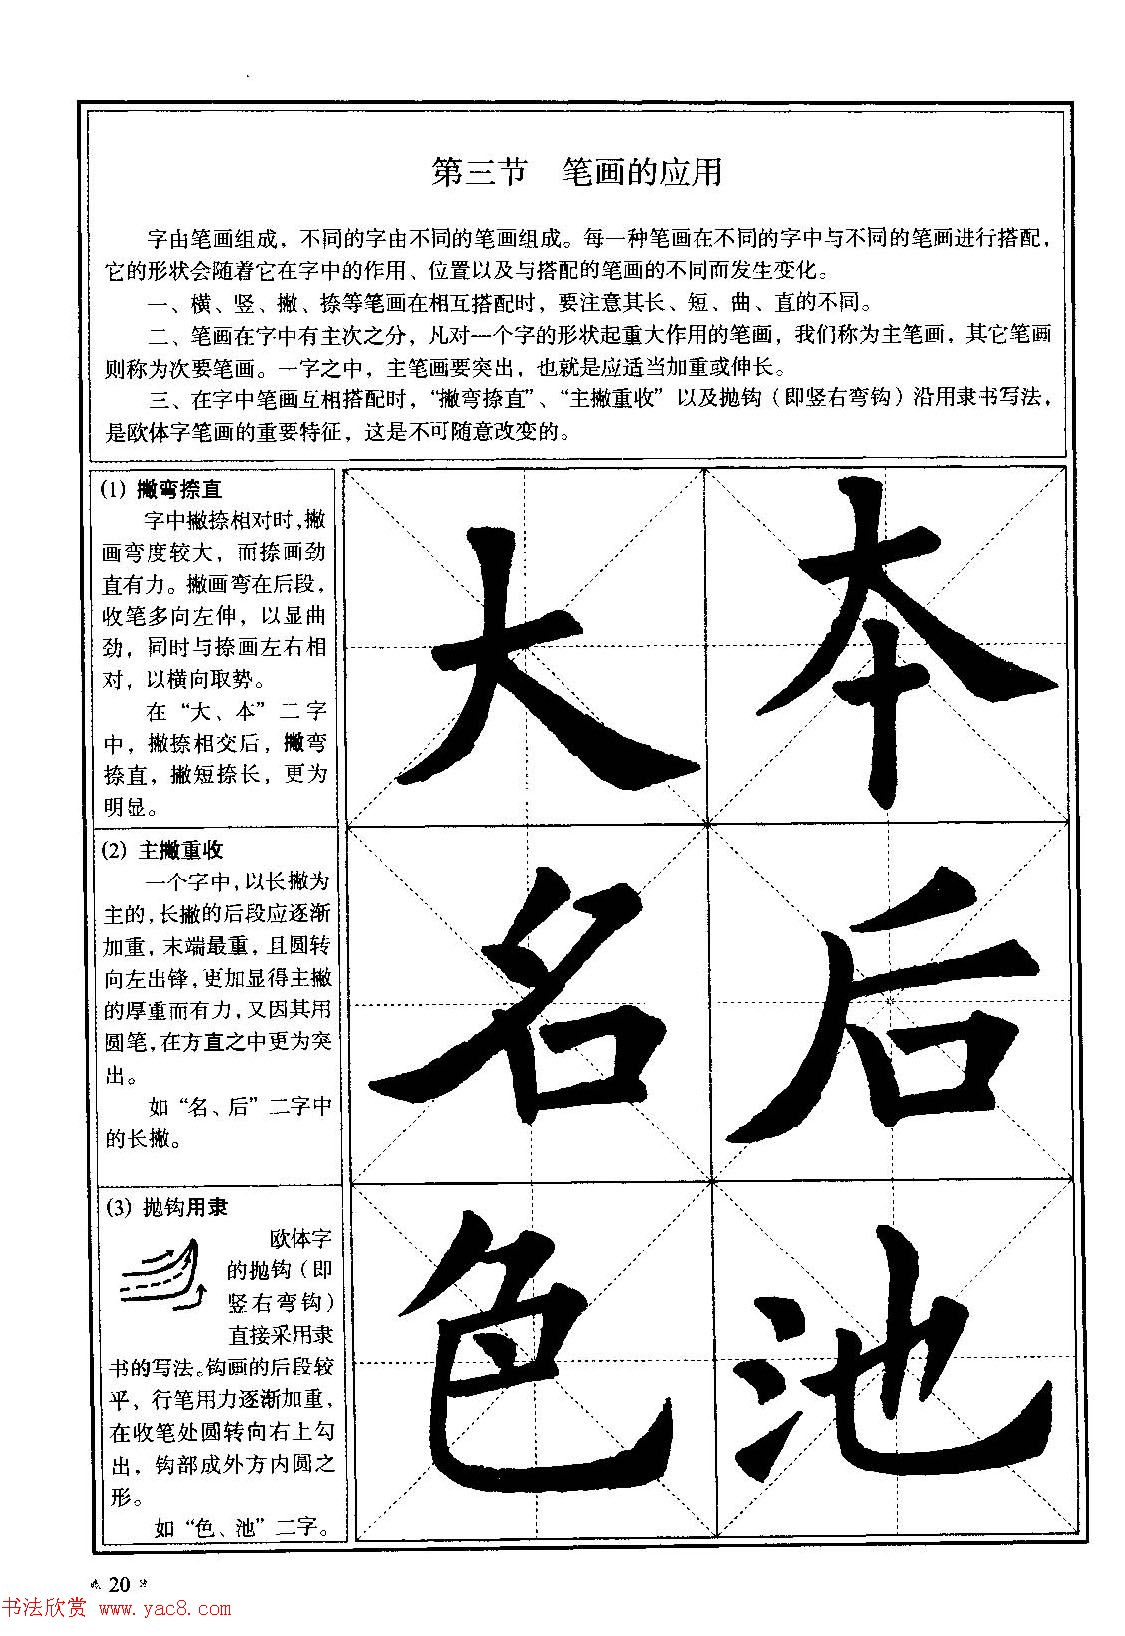 第三节 笔画的应用
字由笔画组成，不同的字由不同的笔画组成。每一种笔画在不同的字中与不同的笔画进行搭配，
它的形状会随着它在字中的作用、位置以及与搭配的笔画的不同而发生变化。
一、横、竖、撇、捺等笔画在相互搭配时，要注意其长、短、曲、直的不同。
二、笔画在字中有主次之分，凡对一个字的形状起重大作用的笔画，我们称为主笔画，其它笔画
则称为次要笔画。一字之中，主笔画要突出，也就是应适当加重或伸长。
三、在字中笔画互相搭配时，“撇弯捺直”、“主撇重收”以及抛钩（即竖右弯钩）沿用隶书写法，
是欧体字笔画的重要特征，这是不可随意改变的。
(1) 撇弯捺直
字中撇捺相对时，撇
画弯度较大，而捺画劲
直有力。撇画弯在后段，
收笔多向左伸，以显曲
劲，同时与捺画左右相
对，以横向取势。
在“大、本”二字
中，撇捺相交后，撇弯
捺直，撇短捺长，更为
明显。
大 本
(2) 主撇重收
一个字中，以长撇为
主的，长撇的后段应逐渐
加重，末端最重，且圆转
向左出锋，更加显得主撇
的厚重而有力，又因其用
圆笔，在方直之中更为突
出。
如“名、后”二字中
的长撇。
名 后
(3) 抛钩用隶
欧体字
的抛钩（即
竖右弯钩）
直接采用隶
书的写法。钩画的后段较
平，行笔用力逐渐加重，
在收笔处圆转向右上勾
出，钩部成外方内圆之
形。
如“色、池”二字。
色 池
20
书法欣赏 www.yac8.com